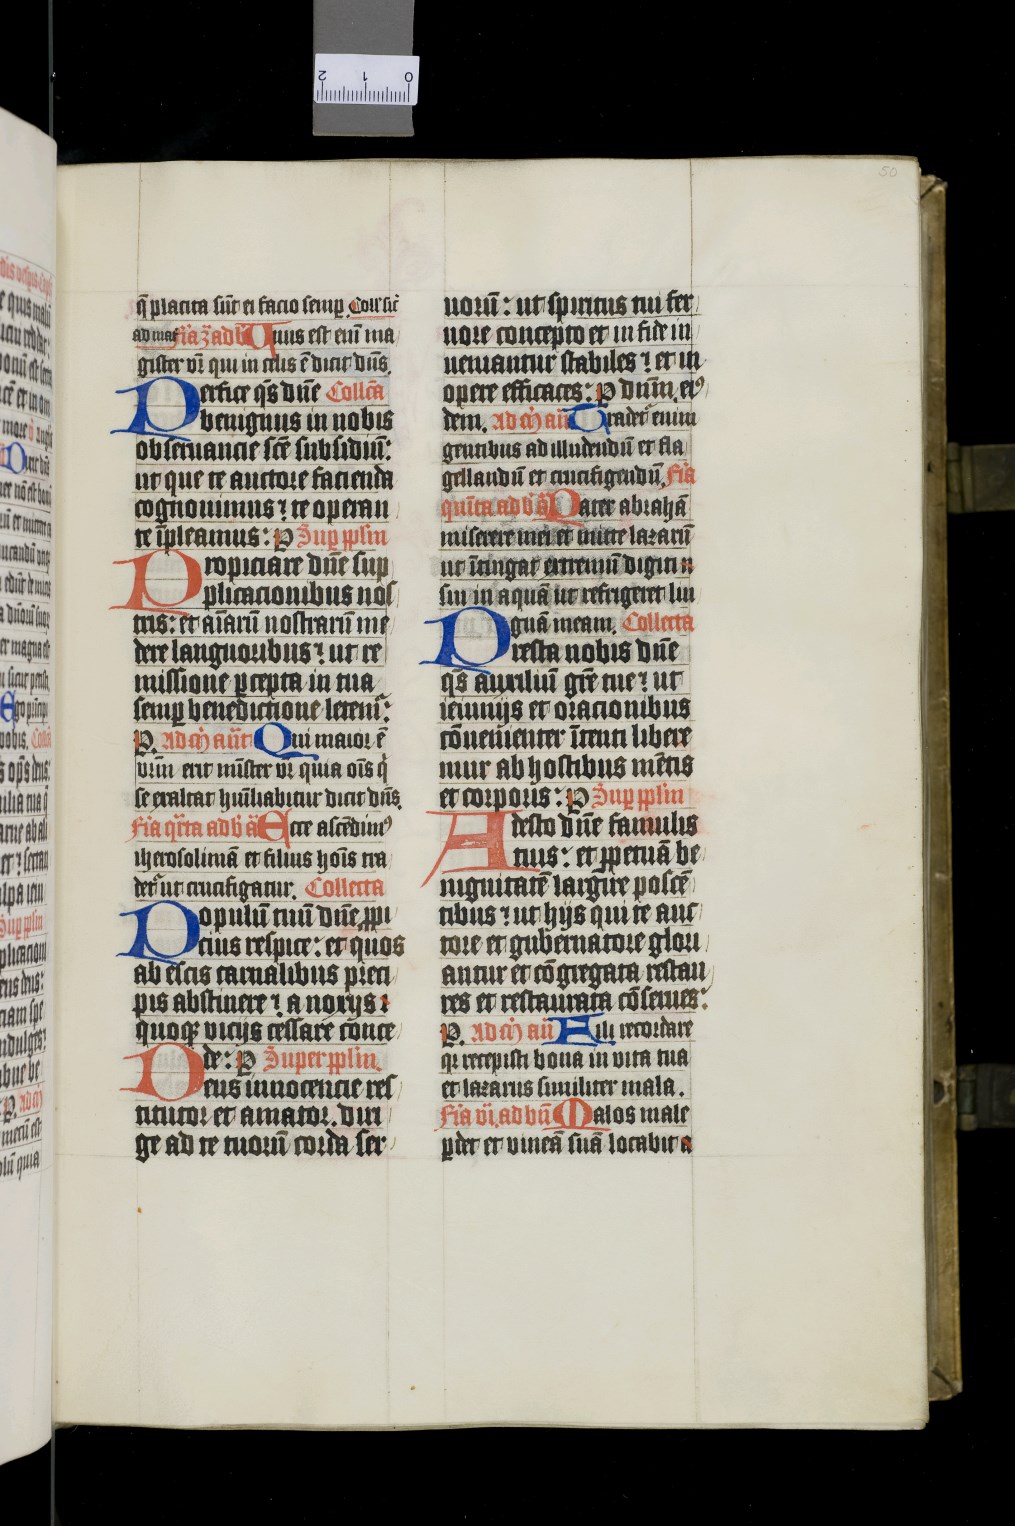 50
q̄ placita sūt ei facio semꝑ. Coll̄ sic̄
ad mat̄ fīa .z̄. ad b̄ Vnus est enī ma
gister vr̄ qui in celis ē dicit dn̄s.
Perfice qs̄ dn̄e Collc̄a
benignus in nobis
obseruancie sc̄e subsidiū:
ut que te auctore facienda
cognouimus ⁊ te operan
te īpleamus: P Suꝑ ppl̄m
Propiciare dn̄e sup
plicacionibus nos
tris: et aīarū nostrarū me
dere languoribus ⁊ ut re
missione ꝑcepta in tua
semꝑ benedictione letemr̄:
P. Ad m̄ an̄t Qui maior ē
vrm̄ erit mīster vr̄ quia oīs q̄
se exaltat humiliabitur dicit dn̄s.
Fīa qr̄ta ad b̄ ā Ecce ascēdimꝰ
iherosolimā et filius hoīs tra
detr̄ ut crucifigatur. Collecta
Populū tuū dn̄e ꝓpi
cius respice: et quos
ab escis carnalibus preci
pis abstinere ⁊ a noxijs
quoqꝫ vicijs cessare conce
de: P Super ppl̄m.
Deus innocencie res
titutor et amator. diri
ge ad te tuorū corda ser
uorū: ut spiritus tui fer
uore concepto et in fide in
ueniantur stabiles ⁊ et in
opere efficaces: P dn̄m. eiꝰ
dem. Ad m̄ an̄ Tradetr̄ enim
gentibus ad illudendū et fla
gellandū et crucifigendū. Fīa
quīta ad b̄ ā Pater abrahā
miserere mei et mitte lazarū
ut ītingat extremū digiti
sui in aquā ut refrigeret lin
guā meam. Collecta
Presta nobis dn̄e
qs̄ auxiliū gr̄e tue ⁊ ut
ieiunijs et oracionibus
cōuenienter ītenti libere
mur ab hostibus mētis
et corporis: P Suꝑ ppl̄m
Adesto dn̄e famulis
tuis: et ꝑpetuā be
nignitatē largire poscē
tibus ⁊ ut hijs qui te auc
tore et gubernatore glori
antur et cōgregata restau
res et restaurata cōserues:
P. Ad m̄ an̄ Fili recordare
qr̄ recepisti bona in vita tua
et lazarus similiter mala.
Fīa vi. ad bn̄ Malos male
ꝑdet et vineā suā locabit a